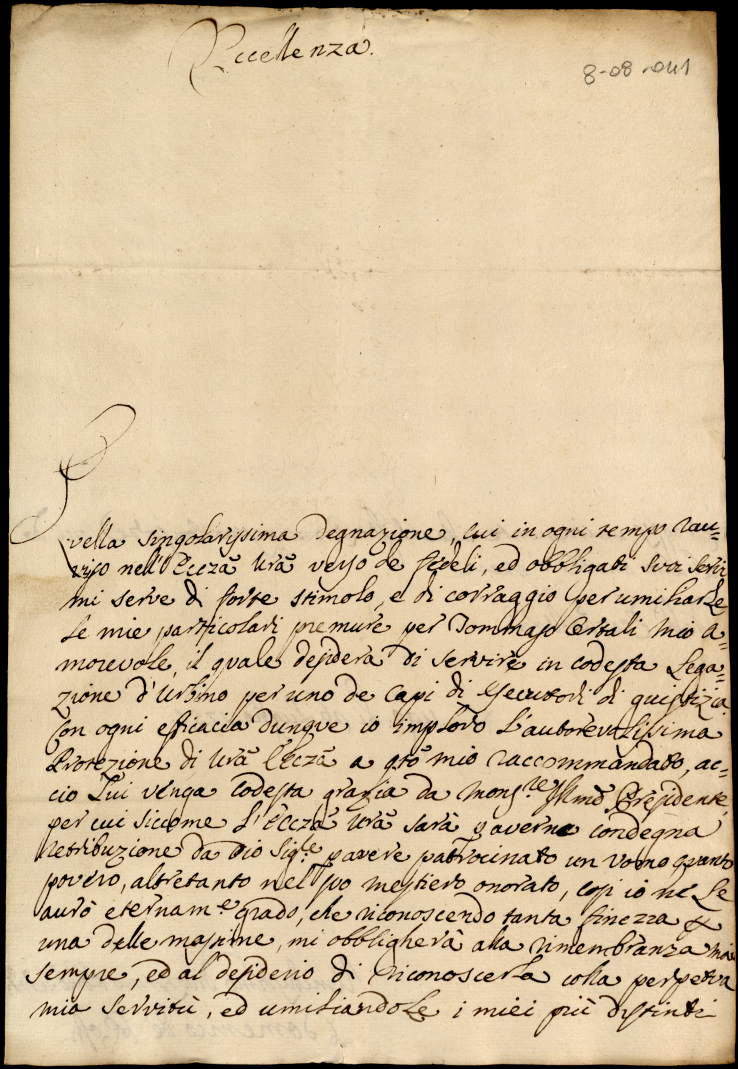 Eccellenza.
8-08-041
Quella singolarissima degnazione, cui in ogni tempo rau=
viso nell'Eccza Vra verso de fedeli, ed obbligati suoi servi
mi serve di forte stimolo, e di corraggio per umiliarLe
Le mie particolari premure per Tommaso Cersali mio a=
morevole, il quale desidera di servire in codesta Lega=
zione d'Urbino per uno de Capi di esecutori di giustizia.
Con ogni efficacia dunque io imploro L'autorevolissima
Protezione di Vra Eccza a qto mio raccommandato, ac=
cio Lui venga codesta grazia da Monsre Illmo Presidente,
per cui siccome L'Eccza Vra sarà p averne condegna
retribuzione da Dio Sigre p avere patrocinato un uomo quanto
povero, altretanto nel suo mestiero onorato, cosi io ne Le
aurò eternamte grado, che riconoscendo tanta finezza p
una delle massime, mi obbligherà alla rimembranza mai
sempre, ed al desiderio di riconoscerLa colla perpetua
mia servitù, ed umiliandoLe i miei più distinti